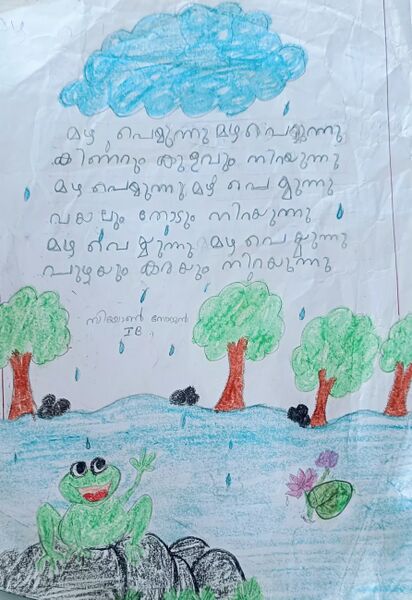 മഴ പെയ്യുന്നു മഴ പെയ്യുന്നു
കിണറും കുളവും നിറയുന്നു
മഴ പെയ്യുന്നു മഴ പെയ്യുന്നു
വയലും തോടും നിറയുന്നു
മഴ പെയ്യുന്നു മഴ പെയ്യുന്നു
പുഴയും കരയും നിറയുന്നു
സിയോൺ
I B